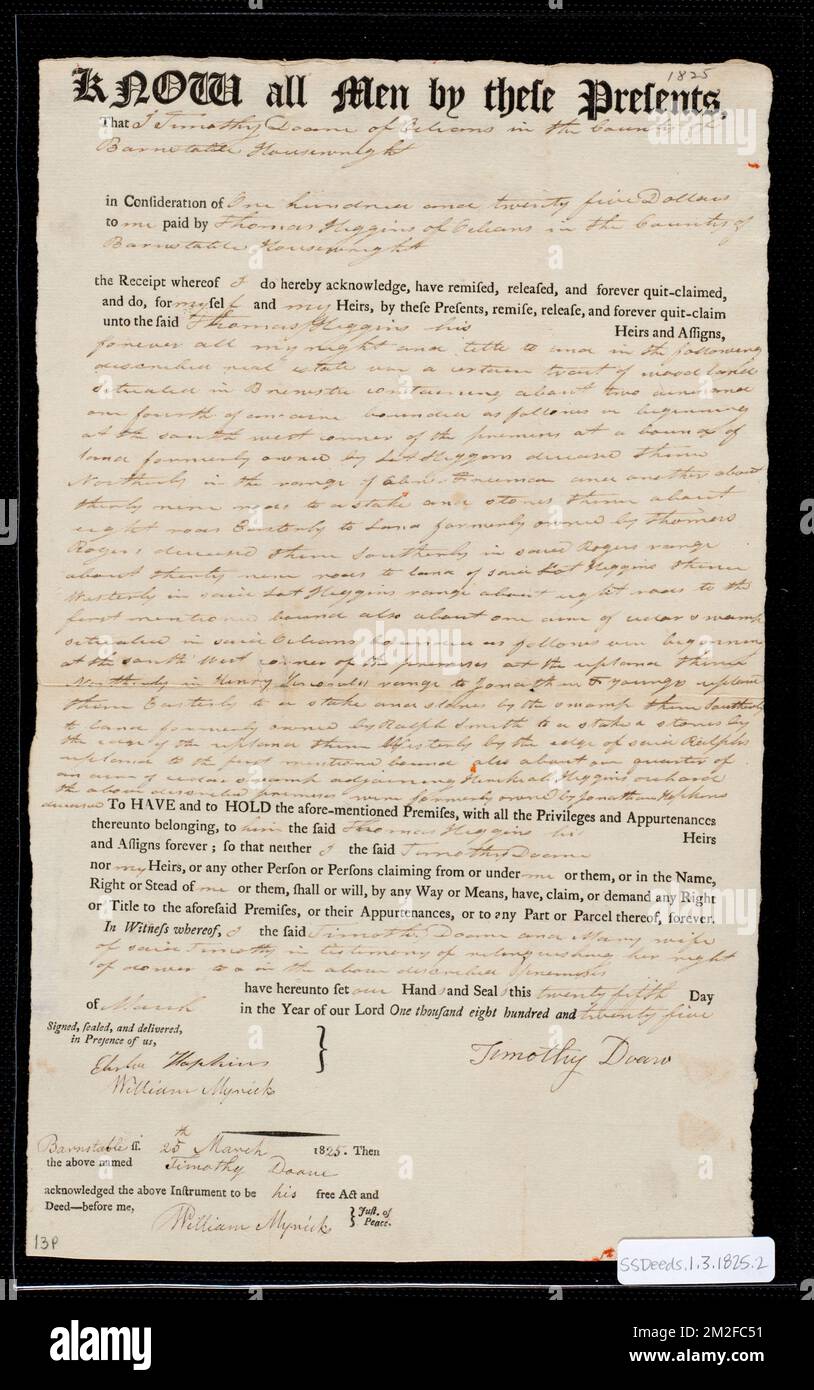 1825
KNOW all Men by these Presents,
That I Timothy Doane of Orleans in the County of
Barnstable Housewright
in Consideration of One hundred and twenty five Dollars
to me paid by Thomas Higgins of Orleans in the County of
Barnstable Housewright
the Receipt whereof I do hereby acknowledge, have remised, released, and forever quit-claimed,
and do, for myself and my Heirs, by these Presents, remise, release, and forever quit-claim
unto the said Thomas Higgins his Heirs and Assigns,
forever all my right and title to and in the following
described real estate viz a certain tract of wood land
situated in Brewster containing about two acres and
one fourth of an acre bounded as follows viz beginning
at the south west corner of the premises at a bound of
land formerly owned by Lot Higgins deceased thence
Northerly in the range of Freeman and another about
thirty nine rods to a stake and stones thence about
eight rods Easterly to Land formerly owned by Thomas
Rogers deceased thence Southerly in said Rogers range
about thirty nine rods to land of said Lot Higgins thence
Westerly in said Lot Higgins range about eight rods to the
first mentioned bound also about one acre of cedar swamp
situated in said Orleans bounded as follows viz beginning
at the south west corner of the premises at the upland thence
Northerly in Henry Knowles range to Jonathan Youngs upland
thence Easterly to a stake and stones by the swamp thence Southerly
to land formerly owned by Ralph Smith to a stake & stones by
the edge of the upland thence Westerly by the edge of said Ralphs
upland to the first mentioned bound also about one quarter of
an acre of cedar swamp adjoining Higgins orchard
the above described premises were formerly owned by Jonathan Hopkins
deceased To HAVE and to HOLD the afore-mentioned Premises, with all the Privileges and Appurtenances
thereunto belonging, to him the said Thomas Higgins his Heirs
and Assigns forever; so that neither I the said Timothy Doane
nor my Heirs, or any other Person or Persons claiming from or under me or them, or in the Name,
Right or Stead of me or them, shall or will, by any Way or Means, have, claim, or demand any Right
or Title to the aforesaid Premises, or their Appurtenances, or to any Part or Parcel thereof, forever.
In Witness whereof, I the said Timothy Doane and Mary wife
of said Timothy in testimony of relinquishing her right
of dower in the above described Premises
have hereunto set our Hands and Seals this twenty fifth Day
of March in the Year of our Lord One thousand eight hundred and twenty five
Signed, sealed, and delivered,
in Presence of us,
Hopkins
William Myrick
Timothy Doane
Barnstable ss. 25th March 1825. Then
the above named Timothy Doane
acknowledged the above Instrument to be his free Act and
Deed—before me,
William Myrick Just. of Peace.
13P
SSDeeds.1.3.1825.2
alamy
Image ID: 2M2FC51
www.alamy.com